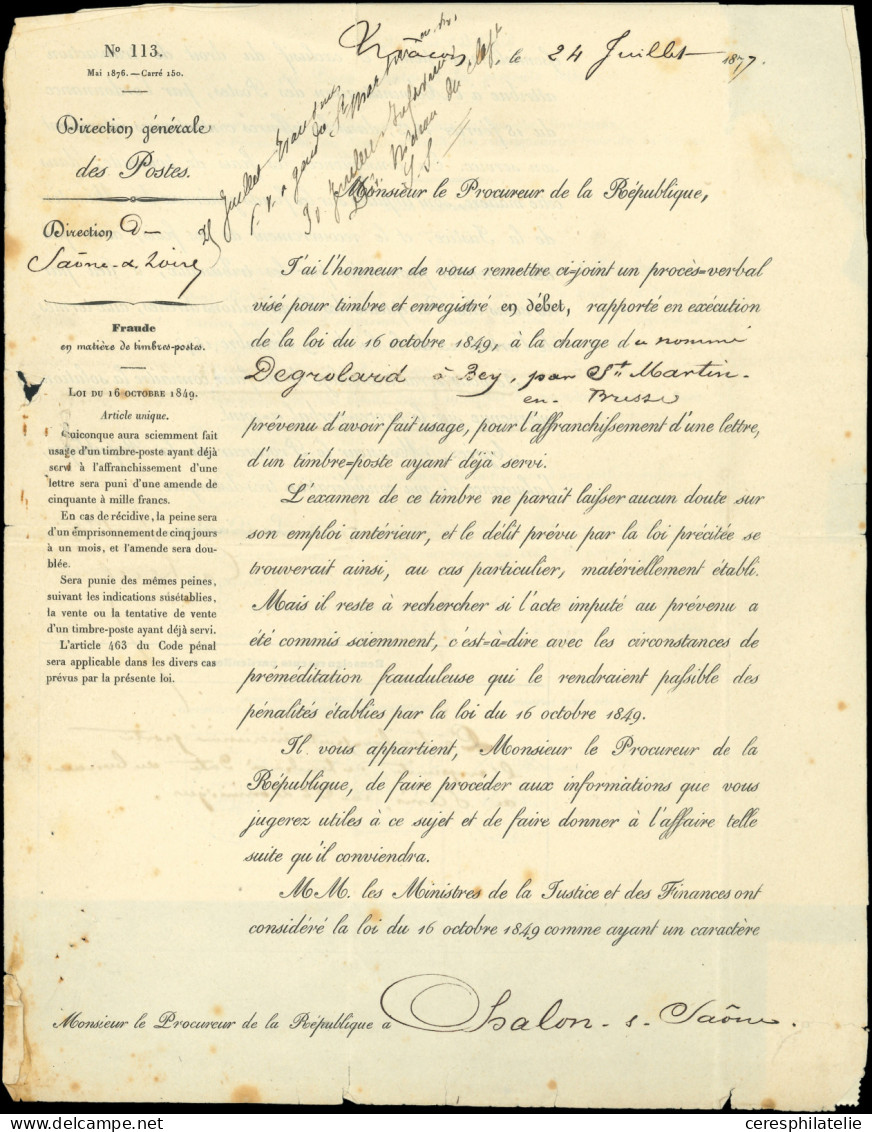 Nº 113.
Mai 1876. — Carré 150.
Direction générale
des Postes.
Direction de
Saône-&-Loire
Fraude
en matière de timbres-postes.
LOI DU 16 OCTOBRE 1849.
Article unique.
Quiconque aura sciemment fait
usage d'un timbre-poste ayant déjà
servi à l'affranchissement d'une
lettre sera puni d'une amende de
cinquante à mille francs.
En cas de récidive, la peine sera
d'un emprisonnement de cinq jours
à un mois, et l'amende sera dou-
blée.
Sera punie des mêmes peines,
suivant les indications susétablies,
la vente ou la tentative de vente
d'un timbre-poste ayant déjà servi.
L'article 463 du Code pénal
sera applicable dans les divers cas
prévus par la présente loi.
Mâcon, le 24 Juillet 1877.
Juillet
St Martin
Monsieur le Procureur de la République,
J'ai l'honneur de vous remettre ci=joint un procès=verbal
visé pour timbre et enregistré en débet, rapporté en exécution
de la loi du 16 octobre 1849, à la charge du nommé
Degrolard à Bey, par St. Martin-
en-Bresse
prévenu d'avoir fait usage, pour l'affranchissement d'une lettre,
d'un timbre=poste ayant déjà servi.
L'examen de ce timbre ne paraît laisser aucun doute sur
son emploi antérieur, et le délit prévu par la loi précitée se
trouverait ainsi, au cas particulier, matériellement établi.
Mais il reste à rechercher si l'acte imputé au prévenu a
été commis sciemment, c'est=à=dire avec les circonstances de
préméditation frauduleuse qui le rendraient passible des
pénalités établies par la loi du 16 octobre 1849.
Il vous appartient, Monsieur le Procureur de la
République, de faire procéder aux informations que vous
jugerez utiles à ce sujet et de faire donner à l'affaire telle
suite qu'il conviendra.
MM. les Ministres de la Justice et des Finances ont
considéré la loi du 16 octobre 1849 comme ayant un caractère
Monsieur le Procureur de la République à Chalon-s-Saône.
ceresphilatelie